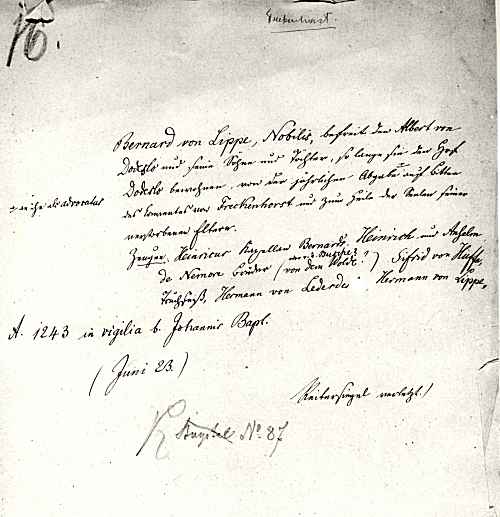 16.
Freckenhorst.
Bernard von Lippe, Nobilis, befreit den Albert von
Dodeslo und seine Söhne und Töchter, so lange sie den Hof
Dodeslo bewohnen, von der jährlichen Abgabe auf Bitten
des Conventes von Freckenhorst und zum Heile der Seelen seiner
verstorbenen Eltern.
als advocatus
Zeugen: Heinricus Kapellan Bernards, Heinrich und Anselm
de Nemore Brüder (von dem Wolde?) Sifrid von
Truchseß, Hermann von Lederde Hermann von Lippe,
A. 1243 in vigilia b. Johannis Bapt.
(Juni 23.)
Reitersiegel verletzt.)
No. 87